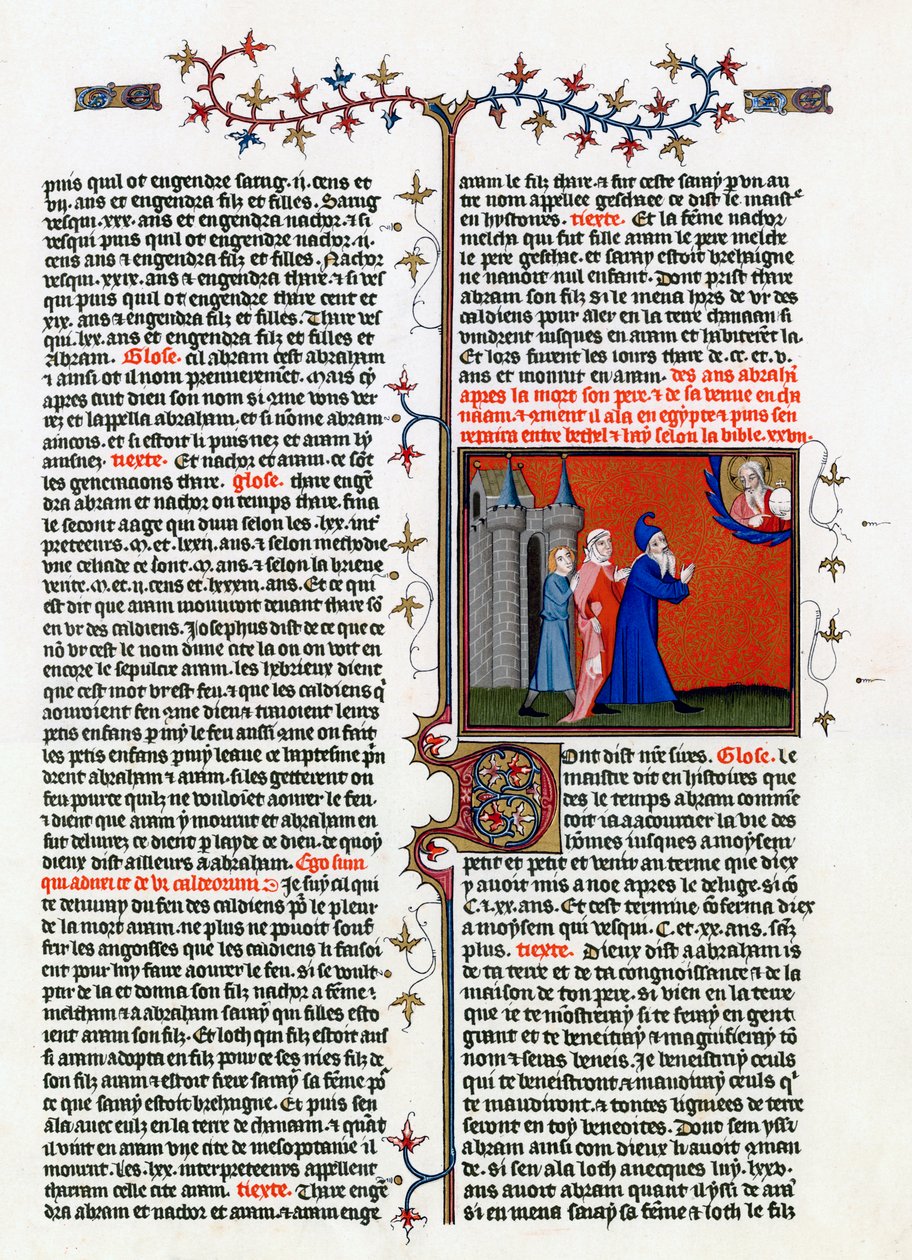 GE
NE
puis quil ot engendre sarug .ii. cens et
vii. ans et engendra filz et filles. Sarug
vesqui .xxx. ans et engendra nachor. & si
vesqui puis quil ot engendre nachor .ii.
cens ans & engendra filz et filles. Nachor
vesqui .xxix. ans & engendra thare. & si ves
qui puis quil ot engendre thare cent et
xix. ans & engendra filz et filles. Thare ves
qui .lxx. ans et engendra filz et filles et
Abram. Glose. cil abram cest abraham
& ainsi ot il nom premieremēt. Mais cy
apres dieu son nom si vous ver
rez et lappella abraham. et si nōme abram
aincois. et si estoit li puis nez et aram ly
aisnez. tiexte. Et nachor et aram. ce sōt
les generacions thare. glose. thare engē
dra abram et nachor ou temps thare. fina
le secont aage qui dura selon les .lxx. int
preteeurs. M. et .lxxii. ans. & selon methodie
vne celiade ce sont .M. ans. & selon la brieue
verite. M. et .ii. cens et .lxxxii. ans. Et ce qui
est dit que aram mouruit deuant thare sō
en vr des caldiens. Josephus dist de ce que ce
nō vr cest le nom dune cite la on on voit en
encore le sepulcre aram. les hebrieux dient
que cest mot vr est feu. & que les caldiens q
aouroient feu dieu & tiuoient leurs
petis enfans p my le feu aussi on fait
les petis enfans p my leaue ce baptesme prī
drent abraham & aram. si les getterent ou
feu pource quilz ne vouloiēt aourer le feu.
& dient que aram y mourut et abraham en
fut deliurez ce dient p layde de dieu. de quoy
dieux dist ailleurs a abraham. Ego sum
qui aduci te de vr caldeorum. Je suy cil qui
te deliuray du feu des caldiens po le pleur
de la mort aram. ne plus ne pouoit souf
frir les angoisses que les caldiens li faisoi
ent pour luy faire aourer le feu. si se voult
ptir de la et donna son filz nachor a fēme
melcham & a abraham saray qui filles esto
ient aram son filz. Et loth qui filz estoit aus
si aram adopta en filz pour ce ses nies filz de
son filz aram & estoit frere saray sa fēme po
ce que saray estoit brehaigne. Et puis sen
ala auec eulz en la terre de chanaam. & quāt
il vint en aram vne cite de mesopotanie il
mourut. Les .lxx. interpreteeurs appellent
charram celle cite aram. tiexte. Thare engē
dra abram et nachor et aram. & aram enge
aram le filz thare. & fut ceste saray p vn au
tre nom appellee geschae ce dist le maist
en hystoires. tiexte. Et la fēme nachor
melcha qui fut fille aram le pere melche
le pere geschae. et saray estoit brehaigne
ne nauoit nul enfant. Dont prist thare
abram son filz si le mena hors de vr des
caldiens pour aler en la terre chanaan. si
vindrent iusques en aram et habiterēt la.
Et lors furent les iours thare de .cc. et .v.
ans et mourut en aram. des ans abrahā
apres la mort son pere. & de sa venue en cha
naam. & il ala en egypte & puis sen
repaira entre bethel & hay selon la bible. xxvii.
Dont dist nrē sires. Glose. le
maistre dit en histoires que
des le temps abram commē
coit ia a acourcier la vie des
hōmes iusques a moysem
petit et petit et venir au terme que diex
y auoit mis a noe apres le deluge. si cō
C. & xx. ans. Et cest termine cōferma diex
a moysem qui vesqui .C. et .xx. ans. sāz
plus. tiexte. Dieux dist a abraham is
de ta terre et de ta congnoissance & de la
maison de ton pere. si vien en la terre
que ie te mōsterray si te feray en gent
grant et te beneitray & magnifieray tō
nom & seras beneis. Je beneistray ceuls
qui te beneistront & maudiray ceuls q
te maudiront. & toutes lignees de terre
seront en toy beneoites. Dont sem yssi
abram ainsi com dieux li auoit
de. si sen ala loth auecques luy. lxxv.
ans auoit abram quant il yssi de arā
si en mena saray sa fēme & loth le filz